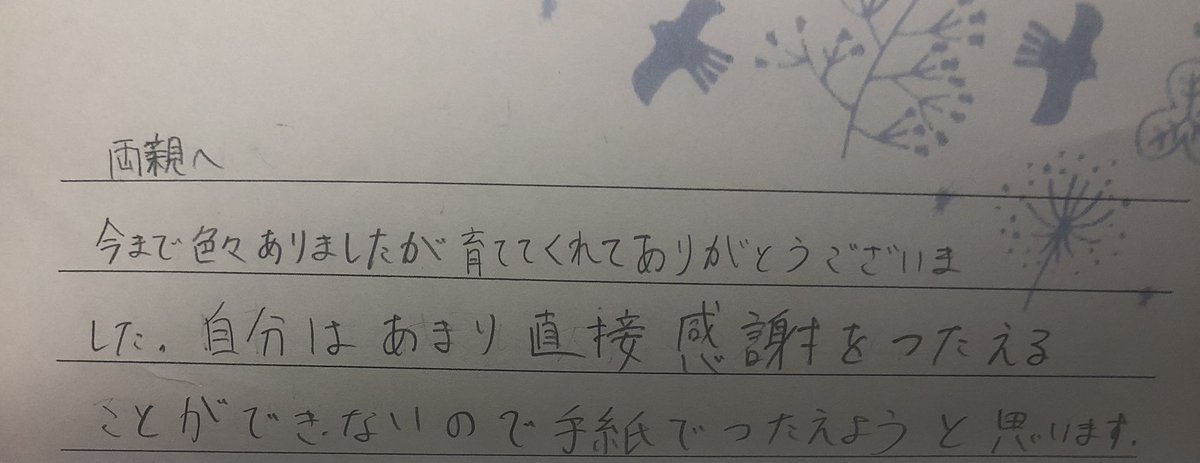 両親へ
今まで色々ありましたが育ててくれてありがとうございま
した。自分はあまり直接感謝をつたえる
ことができないので手紙でつたえようと思います.